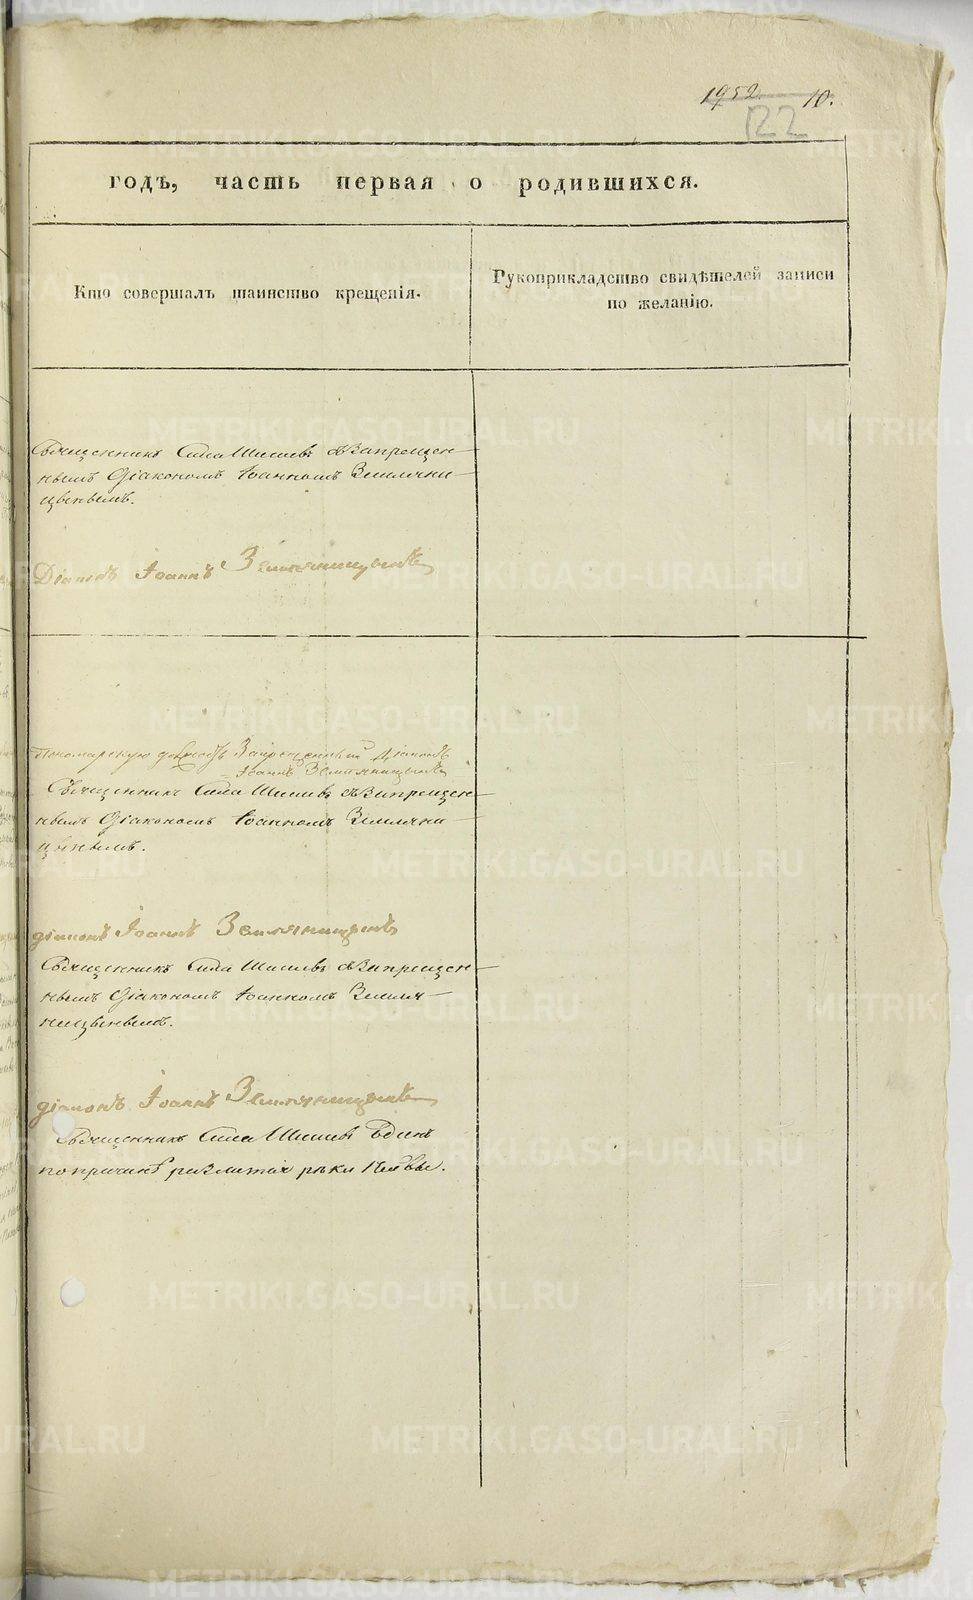 1952 10.
122
годъ, часть первая о родившихся.
Кто совершалъ таинство крещенія.
Рукоприкладство свидѣтелей записи
по желанію.
Священникъ Сила Шишевъ съ Запрещен-
нымъ Діакономъ Іоанномъ Земляни-
цынымъ.
Діаконъ Іоаннъ Земляницынъ
Пономарскую Запрещенный Діаконъ
Іоаннъ Земляницынъ
Священникъ Сила Шишевъ съ Запрещен-
нымъ Діакономъ Іоанномъ Земляни-
цынымъ.
діаконъ Іоаннъ Земляницынъ
Священникъ Сила Шишевъ съ Запрещен-
нымъ Діакономъ Іоанномъ Земля-
ницынымъ.
діаконъ Іоаннъ Земляницынъ
Священникъ Сила Шишевъ Единъ
по причинѣ разлитія рѣки
METRIKI.GASO-URAL.RU